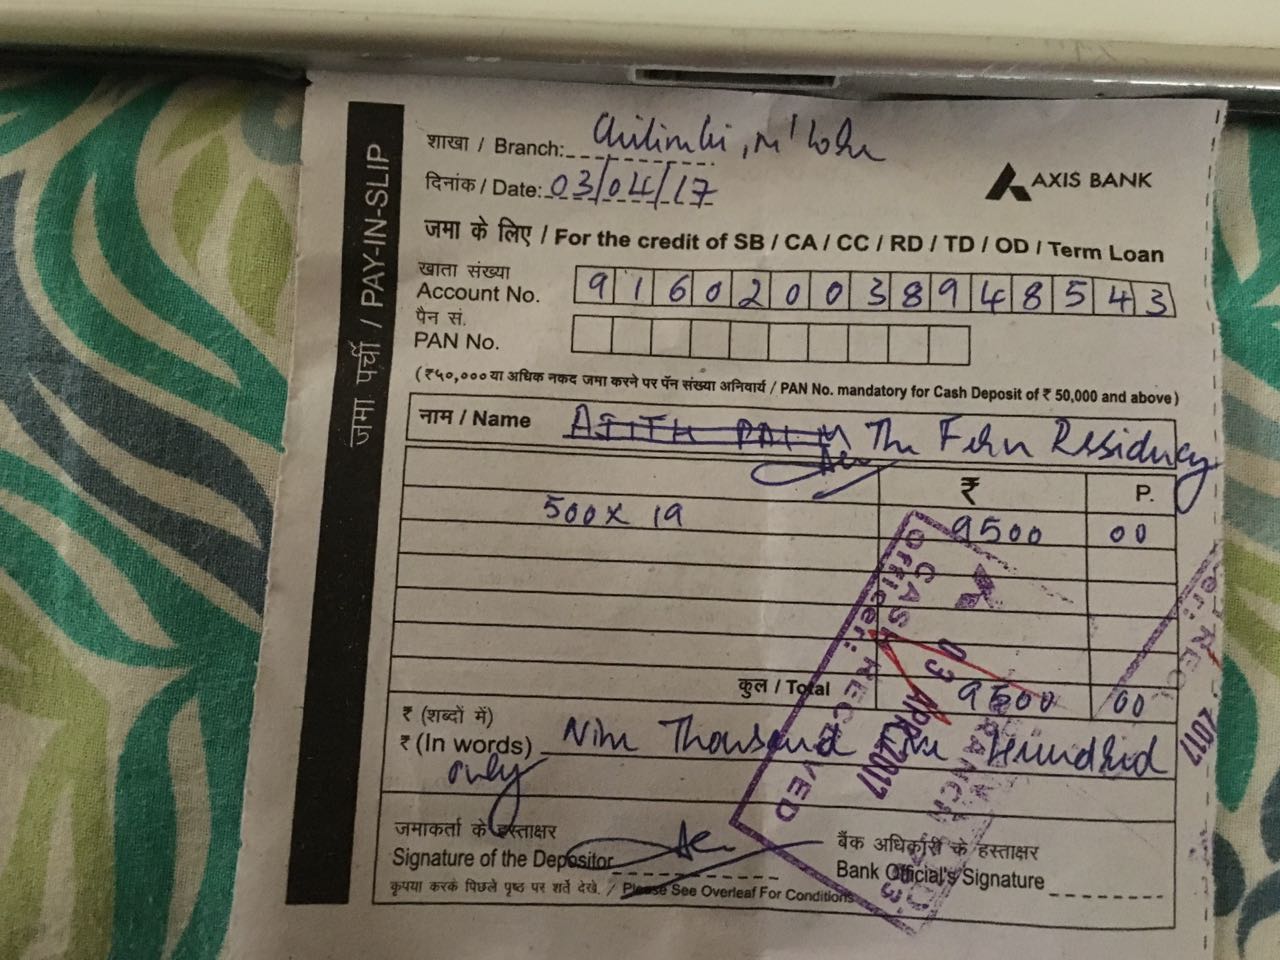 जमा पर्ची / PAY-IN-SLIP
शाखा / Branch: Chilimbi, M'lore
दिनांक / Date: 03/04/17
AXIS BANK
जमा के लिए / For the credit of SB / CA / CC / RD / TD / OD / Term Loan
खाता संख्या
Account No. 916020038948543
पैन सं.
PAN No.
(₹५०,००० या अधिक नकद जमा करने पर पॅन संख्या अनिवार्य / PAN No. mandatory for Cash Deposit of ₹ 50,000 and above)
नाम / Name AJITH PAI M The Fern Residency
₹ P.
500 x 19 9500 00
कुल / Total 9500 00
₹ (शब्दों में)
₹ (In words) Nine Thousand Five Hundred
only
CASH RECEIVED
Officer:
03 APR 2017
जमाकर्ता के हस्ताक्षर
Signature of the Depositor
बैंक अधिकारी के हस्ताक्षर
Bank Official's Signature
कृपया करके पिछले पृष्ठ पर शर्ते देखे. / Please See Overleaf For Conditions
2017